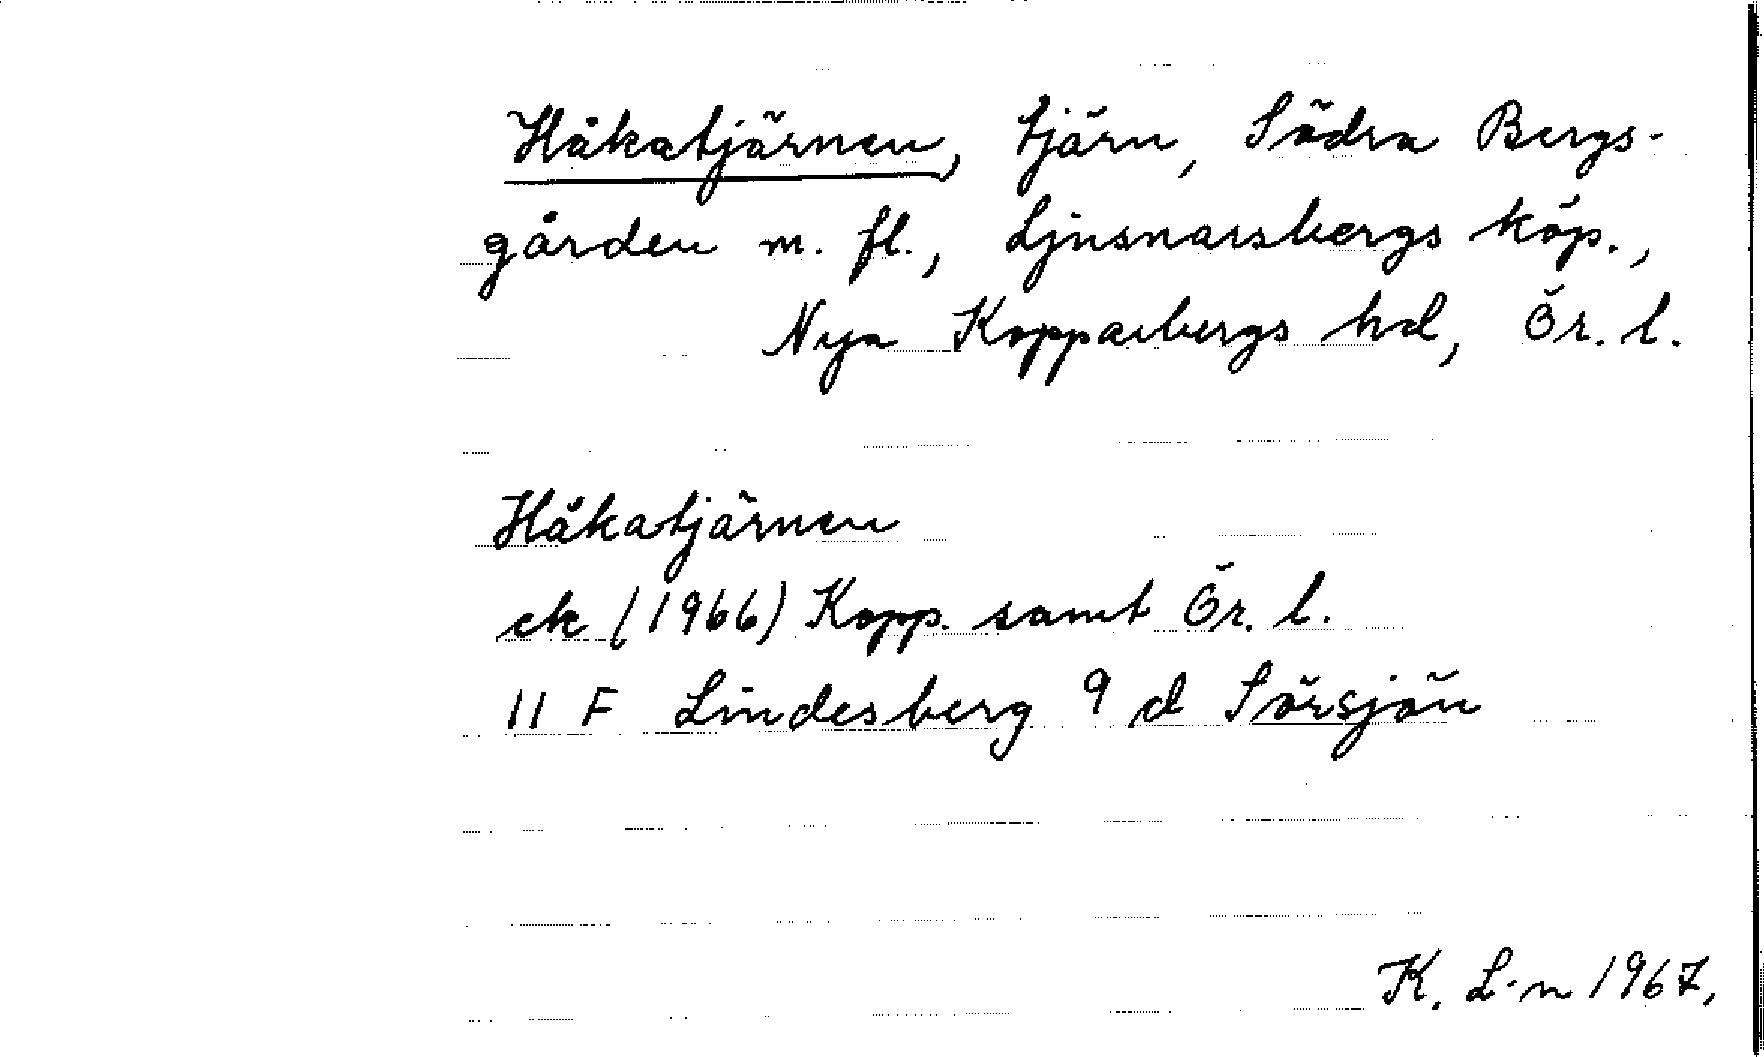 Håkatjärnen, tjärn, Södra Bergs-
gården m. fl., Ljusnarsbergs köp.,
Nya Kopparbergs hd, Ör. l.
Håkatjärnen
ek (1966) Kopp. samt Ör. l.
11 F Lindesberg 9 d Sörsjön
K. L-n 1967.